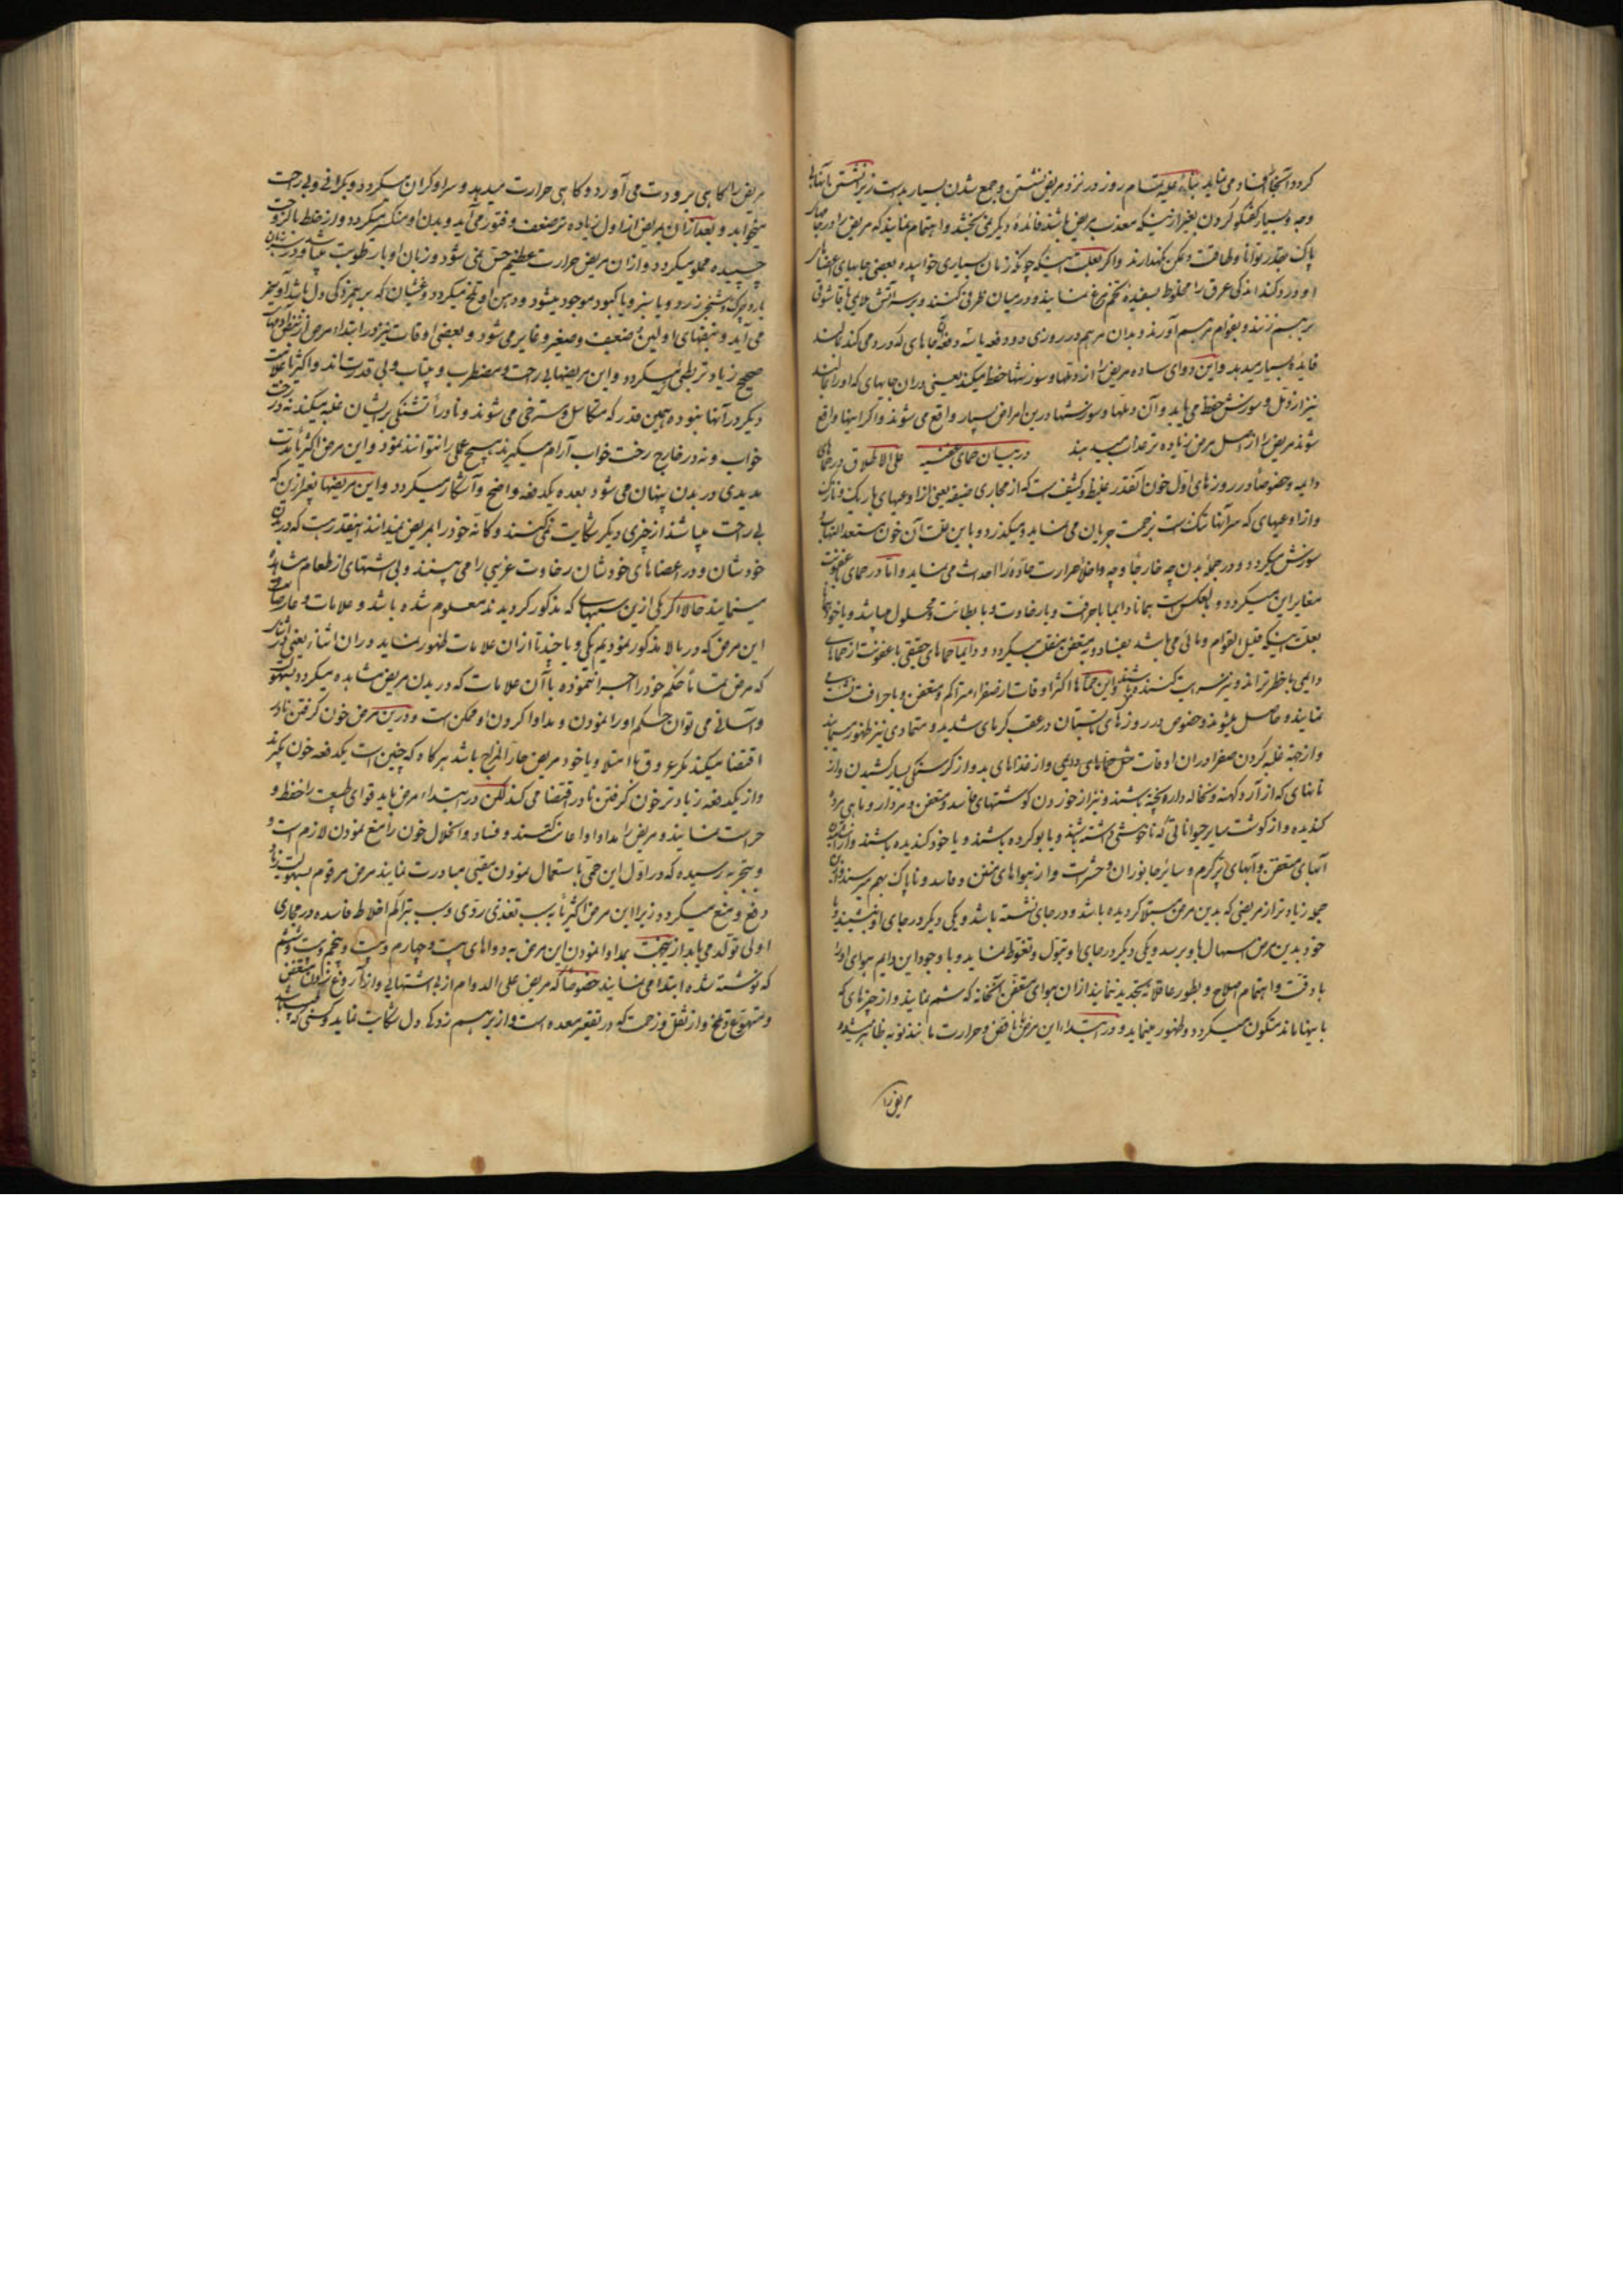 کردد آنجا افساد می نماید بناءً علیه تمام روز در نزد مریض نشستن و جمع شدن بسیار بد است زیرا نشستن با آنها
وجه و بسیار گفتگو کردن بغیر ازینکه معذب مریض باشند فائدهٔ دیگر نمی بخشد و اهتمام نمایند که مریض را در جای
پاک بقدر توانا و طاقت و ممکن نگهدارند و اگر بعلت اینکه چونکه زمان بسیاری خوابیده بعضی جایهای اعضای
او درد کند اندکی عرق را مخلوط بسفیدهٔ تخم مرغ نمایند و در میان ظرفی کنند و بر سر آتش ملایم با قاشوقی
بر هم زنند و بقوام مرهم آورند و بدان مرهم در روزی دو دفعه یا سه دفعه آن جاهای که درد می کند بمالند
فایده بسیار میدهد و این دوای ساده مریض را از دملها و سوزشها حفظ میکند یعنی در ان جایهای که او را بمالند
نیز از دمل و سوزش حفظ می یابد و آن دملها و سوزشها درین امراض بسیار واقع می شوند و اگر اینها واقع
شوند مریض را از اصل مرض زیاده تر عذاب میدهند در بیان حمای عفنیه علی الاطلاق در حمای
دایمه و خصوصاً در روزهای اول خون آنقدر غلیظ و کثیف است که از مجاری ضیقه یعنی از اوعیهای باریک و نازک
و از اوعیهای که سر آنها تنک است بزحمت جریان می نماید و میگذرد و باین علت آن خون مستعد التهاب و
سوزش میگردد و در جملهٔ بدن چه خارجاً و چه داخلاً حرارت حاده را احداث می نماید و اما در حمای عفونت
مغایر این میگردد و بالعکس است همانا دایما با حرافت و با رخاوت و با بطائت و محلول میباشد و یا خود
بعلت اینکه قلیل القوام و مائی می باشد بفساد و بتعفن منقلب میگردد و دایما حماهای حقیقی با عفونت از حماهای
دایمی با خطر تراند و نیز سرایت کننده می باشند و این حماها اکثر اوقات از صفراء متراکم و متعفن و با حرافت نشأت
نمایند و حاصل میشوند و خصوص در روزهای تابستان در عقب گرمای شدید و متمادی نیز ظهور مینمایند
و از جهة غلبه کردن صفرا در ان اوقات مثل حماهای دایمی و از غذاهای بد و از گرسنگی بسیار کشیدن و از
نانهای که از آرد کهنه و نخاله دار پخته باشند و نیز از خوردن گوشتهای فاسد و متعفن و مردار و ماهی مرده
گندیده و از گوشت سایر حیواناتی که ناخوشی داشته باشند و یا بو کرده باشند و یا خود گندیده باشند و از
آبهای متعفن و آبهای پر کرم و سائر جانوران و حشرات و از هواهای متعفن و فاسد و ناپاک بهم میرسند و از
جمله زیاد تر از مریضی که بدین مرض مبتلا گردیده باشد و در جای نشسته باشد و یکی دیگر در جای او نشیند و یا
خود بدین مرض اسهال باو برسد و یکی دیگر در جای او تبول و تغوط نماید و با وجود این دایم هوای او را
با دقت و اهتمام اصلاح و بطور عاقلانه تجدید نمایند از ان هوای متعفن آنخانه که شم نمایند و از چیزهای که
باینها مانند متکون میگردد و ظهور مینماید و در ابتداء این مرض نافض و حرارت مانند نوبه ظاهر میشود و
مریض را
مریض را گاهی برودت می آورد و گاهی حرارت میدهد و سر او گران میگردد و بگرانی و بی راحت
میخوابد و بعد ازان مریض از اول زیاده تر ضعف و فتور می آید و بدن او منکسر میگردد و از خلط با لزوجت
چسپیده مملو میگردد و ازان مریض حرارت عظیم حس نمی شود و زبان او با رطوبت میباشد و در زبان
بارد چرک و سنجر زرد و یا سبز و یا کبود موجود میشود و دهن او تلخ میگردد و غثیان که بر هم زدگی دل باشد او نیز
می آید و نبضهای اولین ضعیف و صغیر و غایر می شود و بعضی اوقات نیز در ابتداء مرض از نبض آدمهای
صحیح زیاد تر بطئ میگردد و این مریضها بی راحت و مضطرب و بیتاب و بی قدرت اند و اکثر یا علامت
دیگر در آنها نبوده همین قدر که متکاسل و مسترخی می شوند و نادراً تشنکی بر ایشان غلبه میکند نه در رخت
خواب و نه در خارج رخت خواب آرام میگیرند هیچ عملی را نتوانند نمود و این مرض اکثریا مدت
مدیدی در بدن پنهان می شود بعده یکدفعه واضح و آشکار میگردد و این مریضها بغیر ازین که
بی راحت میباشند از چیزی دیگر شکایت نمی کنند و کانه خود را مریض نمیدانند اینقدر هست که در بدن
خودشان و در اعضاهای خودشان رخاوت غریبی را می بینند و بی اشتهای از طعام مشاهده
مینمایند حالا اگر یکی ازین سببهای که مذکور گردیدند معلوم شده باشد و علامات و عارضات
این مرض که در بالا مذکور نمودیم یکی و یا چند تا ازان علامات ظهور نماید در ان اثناء یعنی در
که مرض تماماً حکم خود را اجرا ننموده با آن علامات که در بدن مریض مشاهده میگردد بسهولت
و آسانی می توان حکم او را نمودن و مداوا کردن او ممکن است و درین مرض خون گرفتن نادر
اقتضا میکند مگر عروق با امتلا و یا خود مریض حار المزاج باشد هرگاه که چنین است یکدفعه خون بگیرند
و از یکدفعه زیادتر خون گرفتن نادر اقتضا می کند لکن در ابتداء مرض باید قوای طبیعت را حفظ و
حراست نمایند و مریض را مداوا و اعانت کنند و فساد و انحلال خون را منع نمودن لازم است و
و بتجربه رسیده که در اول این حمی باستعمال نمودن مقیئ مبادرت نمایند مرض مرقوم بسهولت زیاد
دفع و منع میگردد زیرا این مرض اکثریا بسبب تغذی ردی و سبب تراکم اخلاط فاسده در مجاری
اولی تولد می یابد ازین جهت بمداوا نمودن این مرض به دواهای بیست و چهارم و بیست و پنجم و بیست و ششم
که نوشته شده ابتدا می نمایند خصوصاً که مریض علی الدوام از بی اشتهائی و از آروغ زدن متعفن
و متهوع و تلخ و از ثقل و زحمت که در تقعر معده است و از بر هم زدگی دل شکایت نماید و کسی که